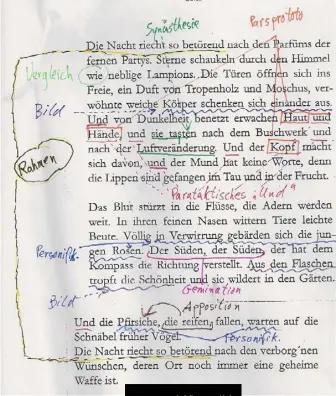 Synästhesie
Pars pro toto
Die Nacht riecht so betörend nach den Parfüms der
fernen Partys. Sterne schaukeln durch den Himmel
Vergleich
wie neblige Lampions. Die Türen öffnen sich ins
Freie, ein Duft von Tropenholz und Moschus, ver-
Bild
wöhnte weiche Körper schenken sich einander aus.
Und von Dunkelheit benetzt erwachen Haut und
Hände, und sie tasten nach dem Buschwerk und
nach der Luftveränderung. Und der Kopf macht
Rahmen
sich davon, und der Mund hat keine Worte, denn
die Lippen sind gefangen im Tau und in der Frucht.
Parataktisches "Und"
Das Blut stürzt in die Flüsse, die Adern werden
weit. In ihren feinen Nasen wittern Tiere leichte
Beute. Völlig in Verwirrung gebärden sich die jun-
Personifik.
gen Rosen. Der Süden, der Süden, der hat dem
Kompass die Richtung verstellt. Aus den Flaschen
tropft die Schönheit und sie wildert in den Gärten.
Bild
Gemination
Apposition
Und die Pfirsiche, die reifen, fallen, warten auf die
Schnäbel früher Vögel.
Personifik.
Die Nacht riecht so betörend nach den verborg'nen
Wünschen, deren Ort noch immer eine geheime
Waffe ist.